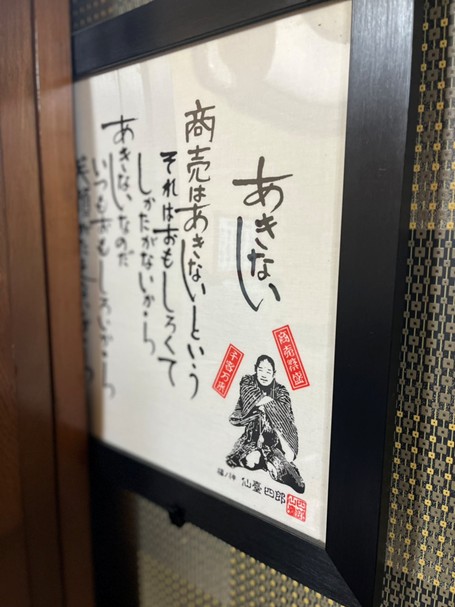 あきない
商売はあきないという
それはおもしろくて
しかたがないから
あきないなのだ
いつもおもしろいから
商売繁盛
千客万来
福ノ神 仙臺四郎